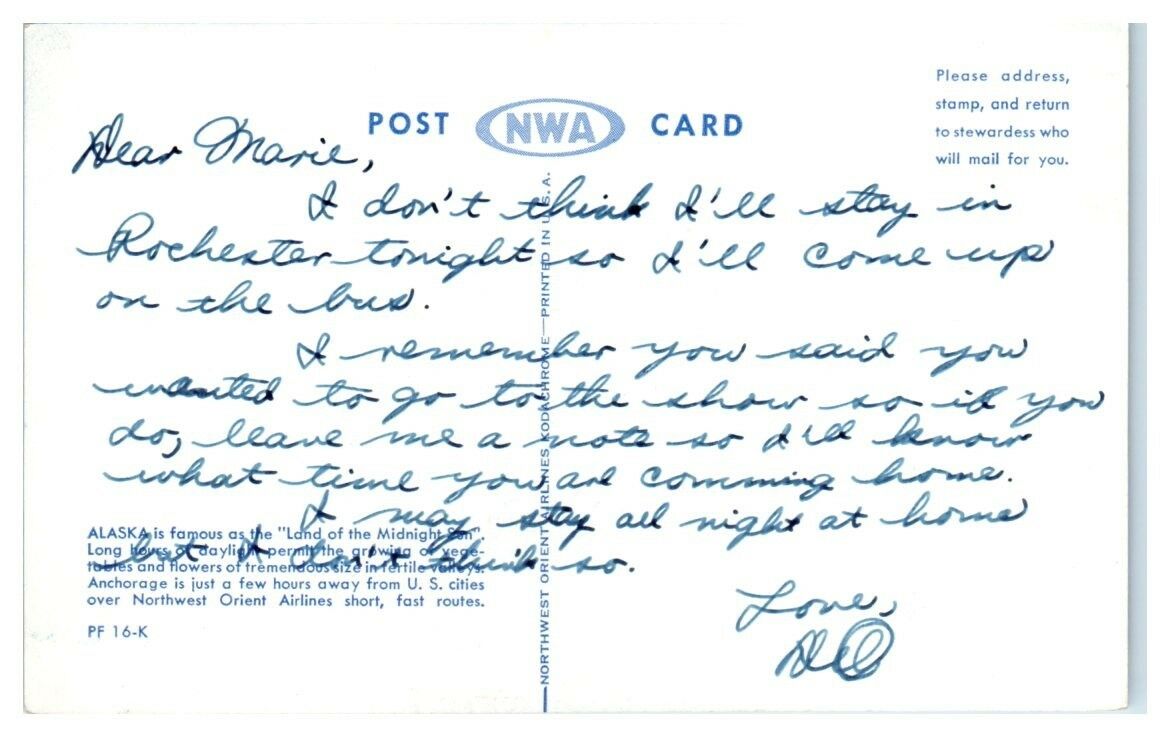 POST NWA CARD
Please address,
stamp, and return
to stewardess who
will mail for you.
Dear Marie,
I don't think I'll stay in
Rochester tonight so I'll come up
on the bus.
I remember you said you
wanted to go to the show so if you
do, leave me a note so I'll know
what time you are comming home.
I may stay all night at home
but I don't think so.
Love,
ALASKA is famous as the "Land of the Midnight Sun".
Long hours of daylight permit the growing of vege-
tables and flowers of tremendous size in fertile valleys.
Anchorage is just a few hours away from U. S. cities
over Northwest Orient Airlines short, fast routes.
PF 16-K
NORTHWEST ORIENT AIRLINES KODACHROME—PRINTED IN U.S.A.